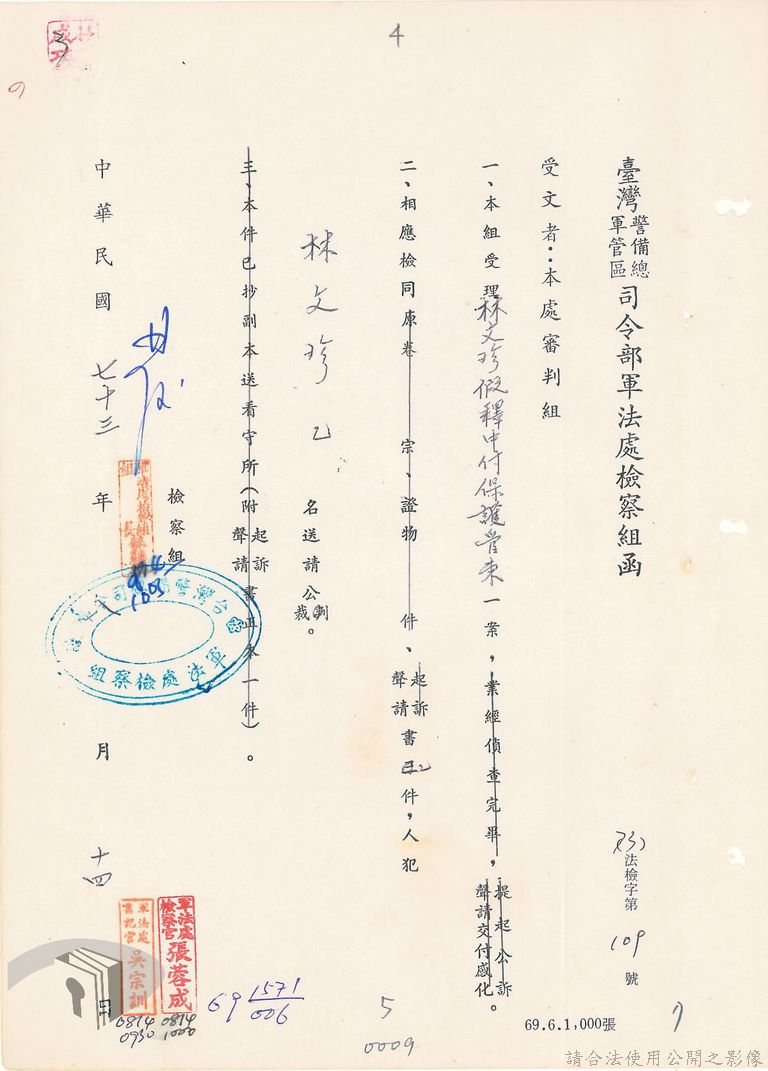 4
臺灣警備總軍管區司令部軍法處檢察組函
法檢字第109號
受文者：本處審判組
一、本組受理林文珍假釋中付保護管束一案，業經偵查完畢，提起公訴聲請交付感化。
二、相應檢同原卷　宗、證物　件、起訴聲請書三2件，人犯
林文珍乙名送請公判裁。
三、本件已抄副本送看守所（附起訴聲請書正本一件）。
檢察組
中華民國七十三年　月十四日
軍法處檢察組
軍法處檢察官張蓉成
軍法處書記官吳宗訓
0814
1000
0814
0930
69 1571/006
5
0009
69.6.1,000張
請合法使用公開之影像